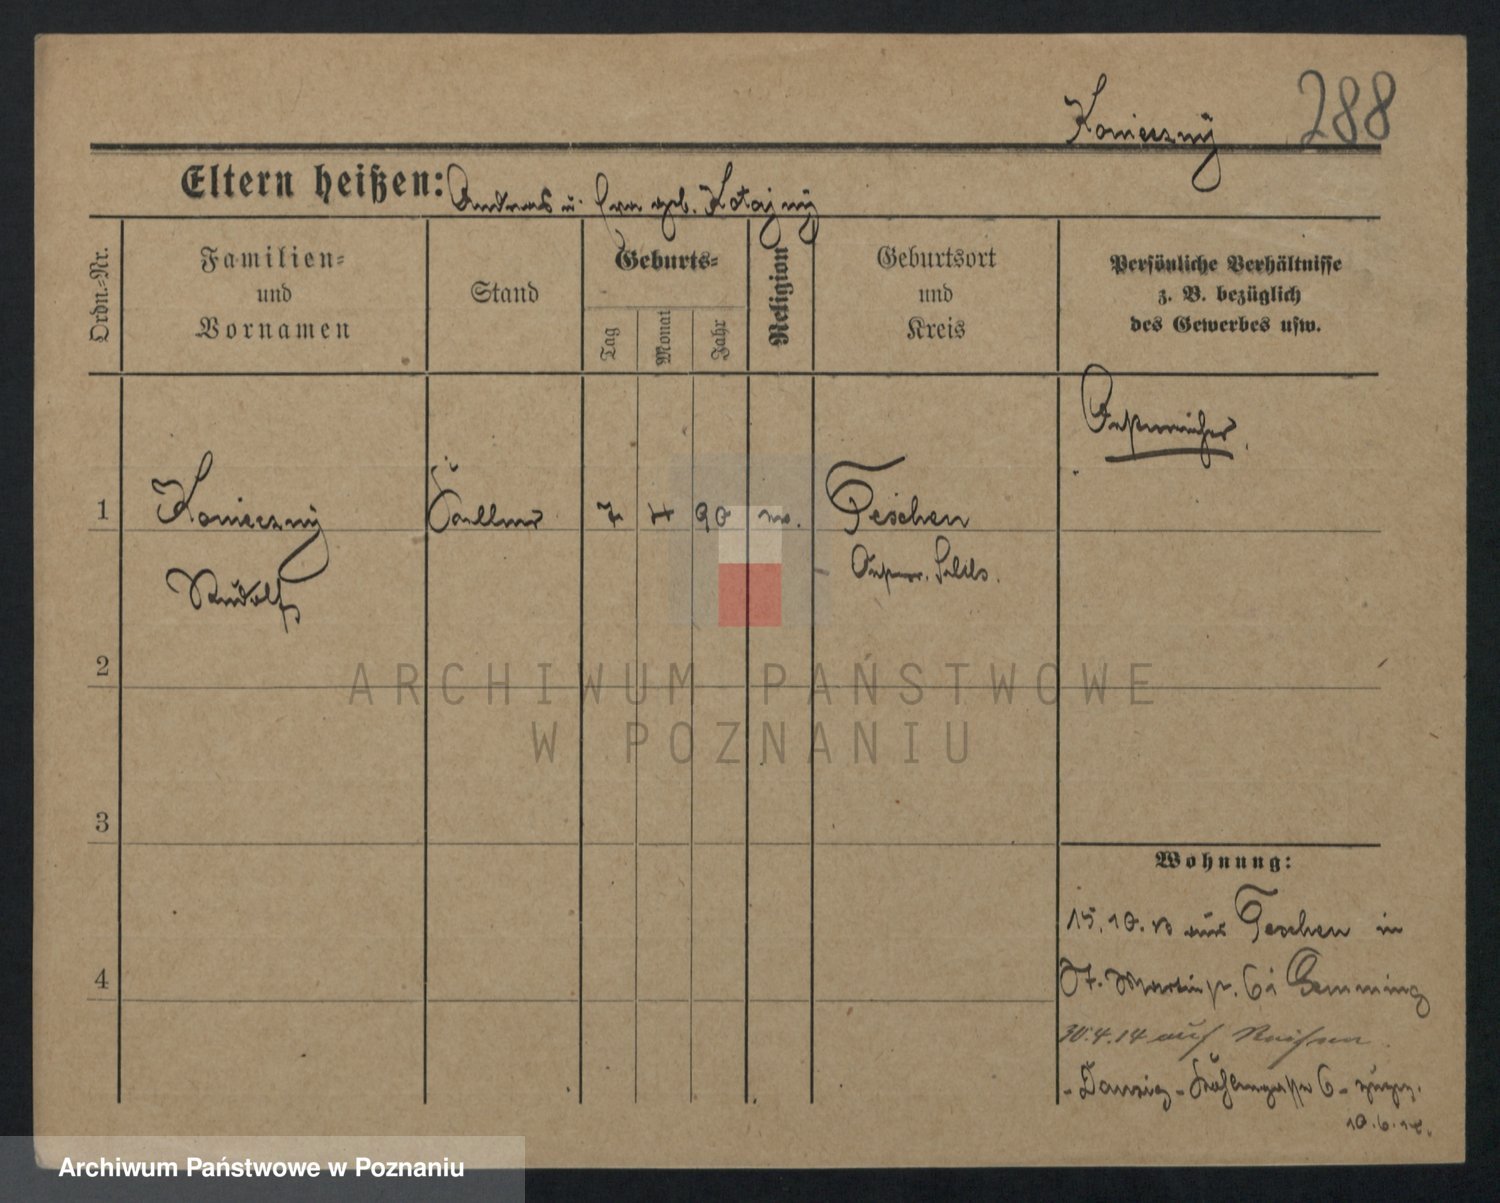 Konieczny
288
Eltern heißen: Andreas u. Eva geb. Kotajny
Ordn.-Nr.
Familien-
und
Vornamen
Stand
Geburts-
Tag
Monat
Jahr
Religion
Geburtsort
und
Kreis
Persönliche Verhältnisse
z. B. bezüglich
des Gewerbes usw.
Oesterreicher
1 Konieczny Kellner 7 4 90 Teschen
Rudolf Oesterr. Schles.
2
ARCHIWUM PAŃSTWOWE
W POZNANIU
3
Wohnung:
15.10.13 aus Teschen in
St. Martinstr. 6 i Gemming
4
30.4.14 auf Reisen
- Danzig - 6 -
10.6.14.
Archiwum Państwowe w Poznaniu